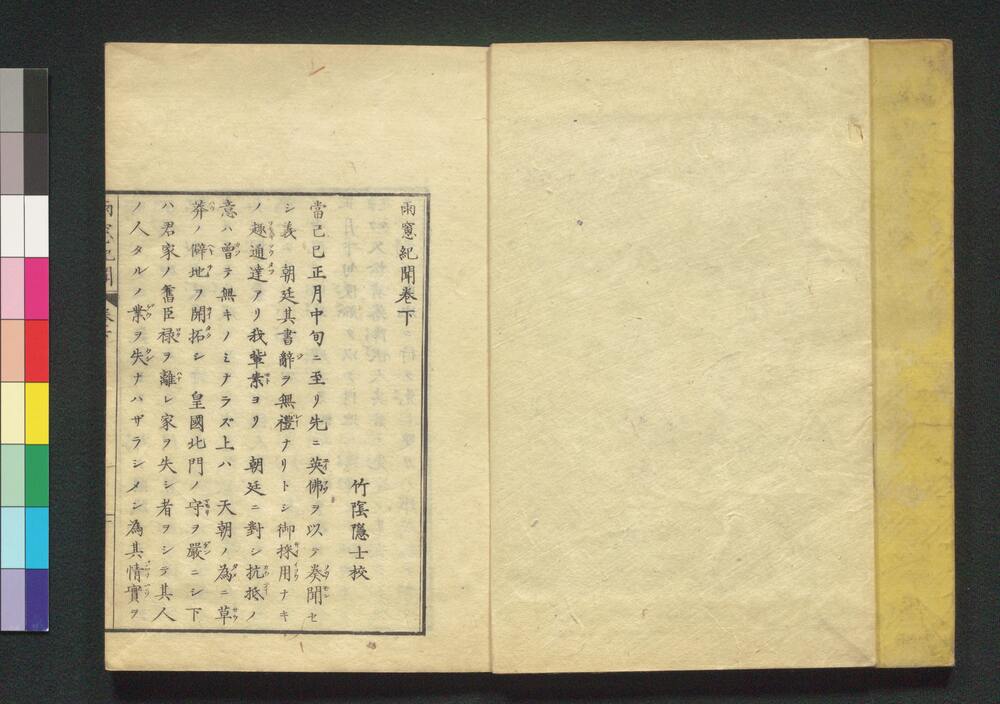 雨窓紀聞巻下
竹蔭隠士校
當己巳正月中旬ニ至リ先ニ英佛ヲ以テ奏聞セ
シ義　朝廷其書辭ヲ無禮ナリトシ御採用ナキ
ノ趣通達アリ我輩素ヨリ　朝廷ニ對シ抗抵ノ
意ハ曾テ無キノミナラズ上ハ　天朝ノ為ニ草
莽ノ僻地ヲ開拓シ　皇國北門ノ守ヲ嚴ニシ下
ハ君家ノ舊臣禄ヲ離レ家ヲ失シ者ヲシテ其人
ノ人タルノ業ヲ失ナハザラシメン為其情實ヲ